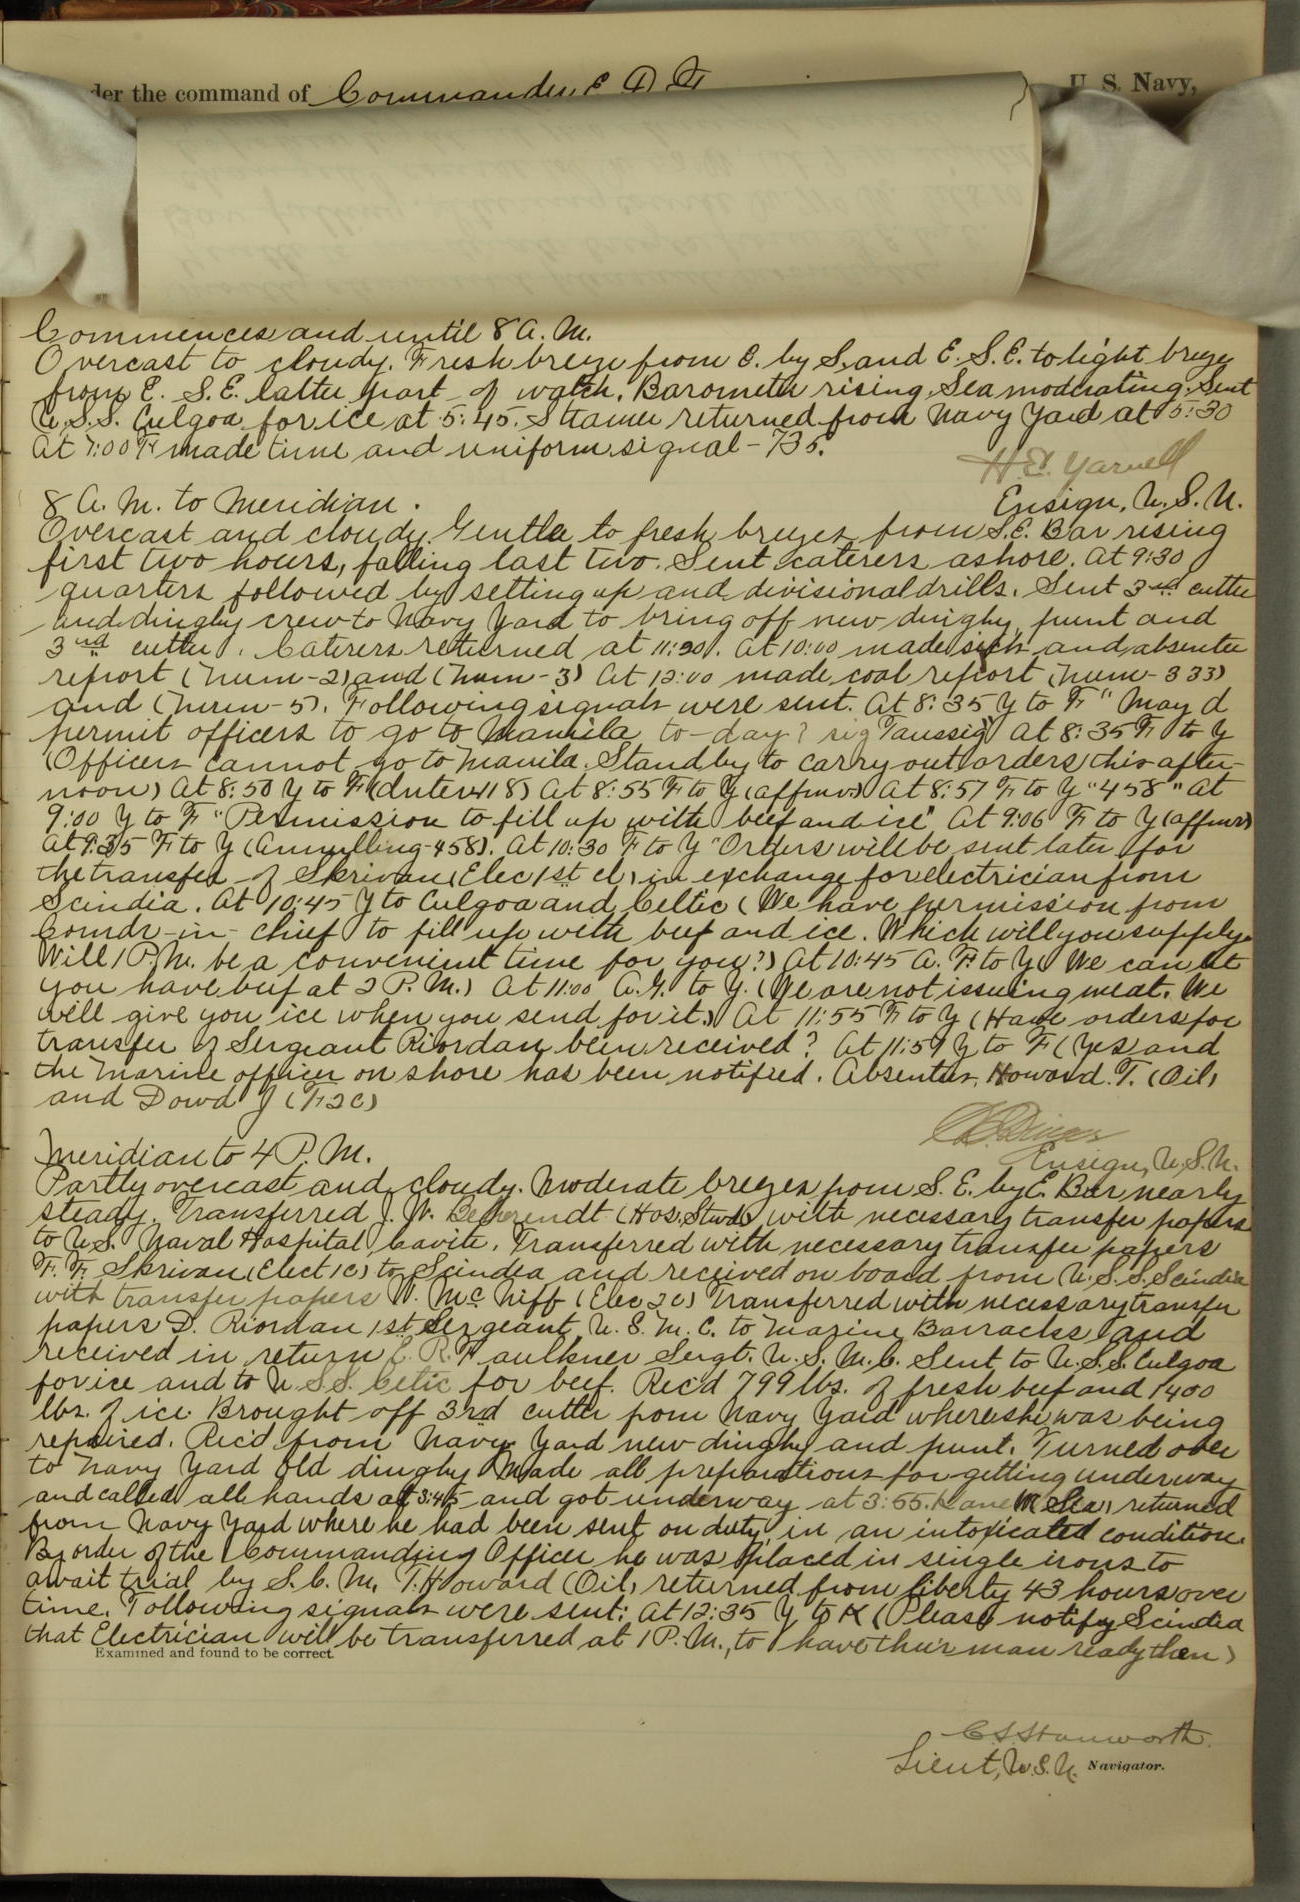 der the command of Commander E. D. U. S. Navy,
Commences and until 8 A. M.
Overcast to cloudy. Fresh breeze from E. by S. and E. S. E. to light breeze
from E. S. E. latter part of watch. Barometer rising. Sea moderating. Sent
U. S. S. Culgoa for ice at 5:45. Steamer returned from Navy Yard at 5:30
At 7:00 F made time and uniform signal - 735.
H. E. Yarnell
Ensign, U. S. N.
8 A. M. to Meridian.
Overcast and cloudy. Gentle to fresh breezes from S. E. Bar rising
first two hours, falling last two. Sent caterers ashore. At 9:30
quarters followed by setting up and divisional drills. Sent 3rd cutter
and dinghy crew to Navy Yard to bring off new dinghy, punt and
3rd cutter. Caterers returned at 11:20. At 10:00 made sick and absentee
report (Num-2) and (Num-3) At 12:00 made coal report (Num-333)
and (Num-5). Following signals were sent. At 8:35 Y to F "May d
permit officers to go to Manila to-day? sig Taussig" At 8:35 F to Y
(Officers cannot go to Manila. Stand by to carry out orders this after-
noon) At 8:50 Y to F (Inter 418) At 8:55 F to Y (affmv.) At 8:57 F to Y "458" At
9:00 Y to F "Permission to fill up with beef and ice" At 9:06 F to Y (affmv)
At 9:35 F to Y (Annulling-458). At 10:30 F to Y "Orders will be sent later for
the transfer of Skrivan (Elec 1st cl) in exchange for electrician from
Scindia. At 10:45 Y to Culgoa and Celtic (We have permission from
Comdr-in-chief to fill up with beef and ice. Which will you supply
Will 1 P. M. be a convenient time for you?) At 10:45 A. F. to Y. We can let
you have beef at 2 P. M.) At 11:00 A. G. to Y. (We are not issuing meat. We
will give you ice when you send for it.) At 11:55 F to Y (Have orders for
transfer of Sergeant Riordan been received? At 11:59 Y to F (Yes and
the Marine officer on shore has been notified. Absentees, Howard. T. (Oil)
and Dowd J (F2C)
Ensign, U. S. N.
Meridian to 4 P. M.
Partly overcast and cloudy. Moderate breezes from S. E. by E. Bar nearly
steady. Transferred J. W. (Hos. Stwd) with necessary transfer papers
to U.S. Naval Hospital, Cavite. Transferred with necessary transfer papers
F. F. Skrivan (Elect 1c) to Scindia and received on board from U. S. S. Scindia
with transfer papers W. McNiff (Elec 2c) Transferred with necessary transfer
papers D. Riordan 1st Sergeant, U. S. M. C. to Marine Barracks and
received in return E. R. Faulkner Sergt. U. S. M. C. Sent to U. S. S. Culgoa
for ice and to U. S. S. Celtic for beef. Rec'd 799 lbs. of fresh beef and 1400
lbs. of ice. Brought off 3rd cutter from Navy Yard where she was being
repaired. Rec'd from Navy Yard new dinghy and punt. Turned over
to Navy Yard old dinghy. Made all preparations for getting underway
and called all hands at 3:45 and got underway at 3:55. (Sea) returned
from Navy Yard where he had been sent on duty in an intoxicated condition.
By order of the Commanding Officer he was placed in single irons to
await trial by S. C. M. T. Howard (Oil) returned from liberty 43 hours over
time. Following signals were sent: At 12:35 Y to K (Please notify Scindia
that Electrician will be transferred at 1 P. M., to have their man ready then)
Examined and found to be correct.
C S Stanworth.
Lieut, U. S. N. Navigator.